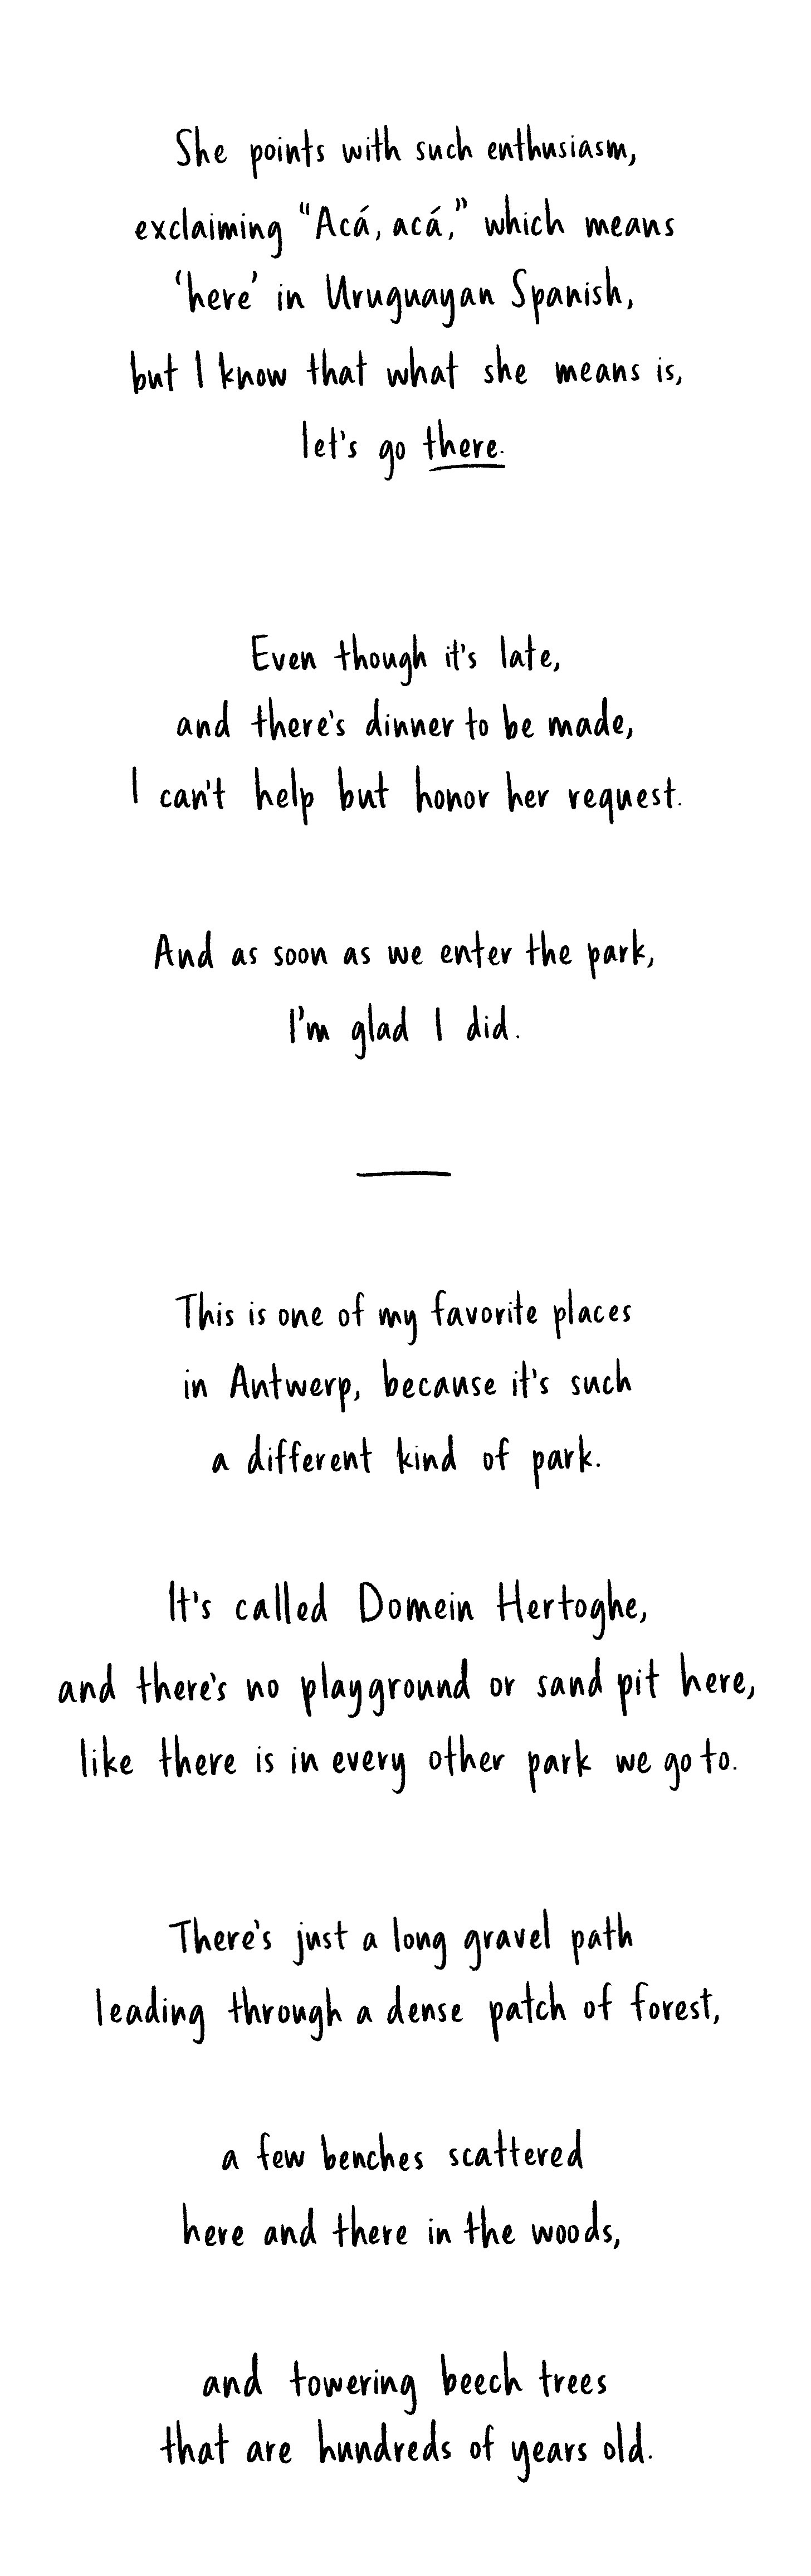 She points with such enthusiasm,
exclaiming “Acá, acá,” which means
‘here’ in Uruguayan Spanish,
but I know that what she means is,
let's go there.
Even though it's late,
and there's dinner to be made,
I can't help but honor her request.
And as soon as we enter the park,
I'm glad I did.
This is one of my favorite places
in Antwerp, because it's such
a different kind of park.
It's called Domein Hertoghe,
and there's no playground or sand pit here,
like there is in every other park we go to.
There's just a long gravel path
leading through a dense patch of forest,
a few benches scattered
here and there in the woods,
and towering beech trees
that are hundreds of years old.